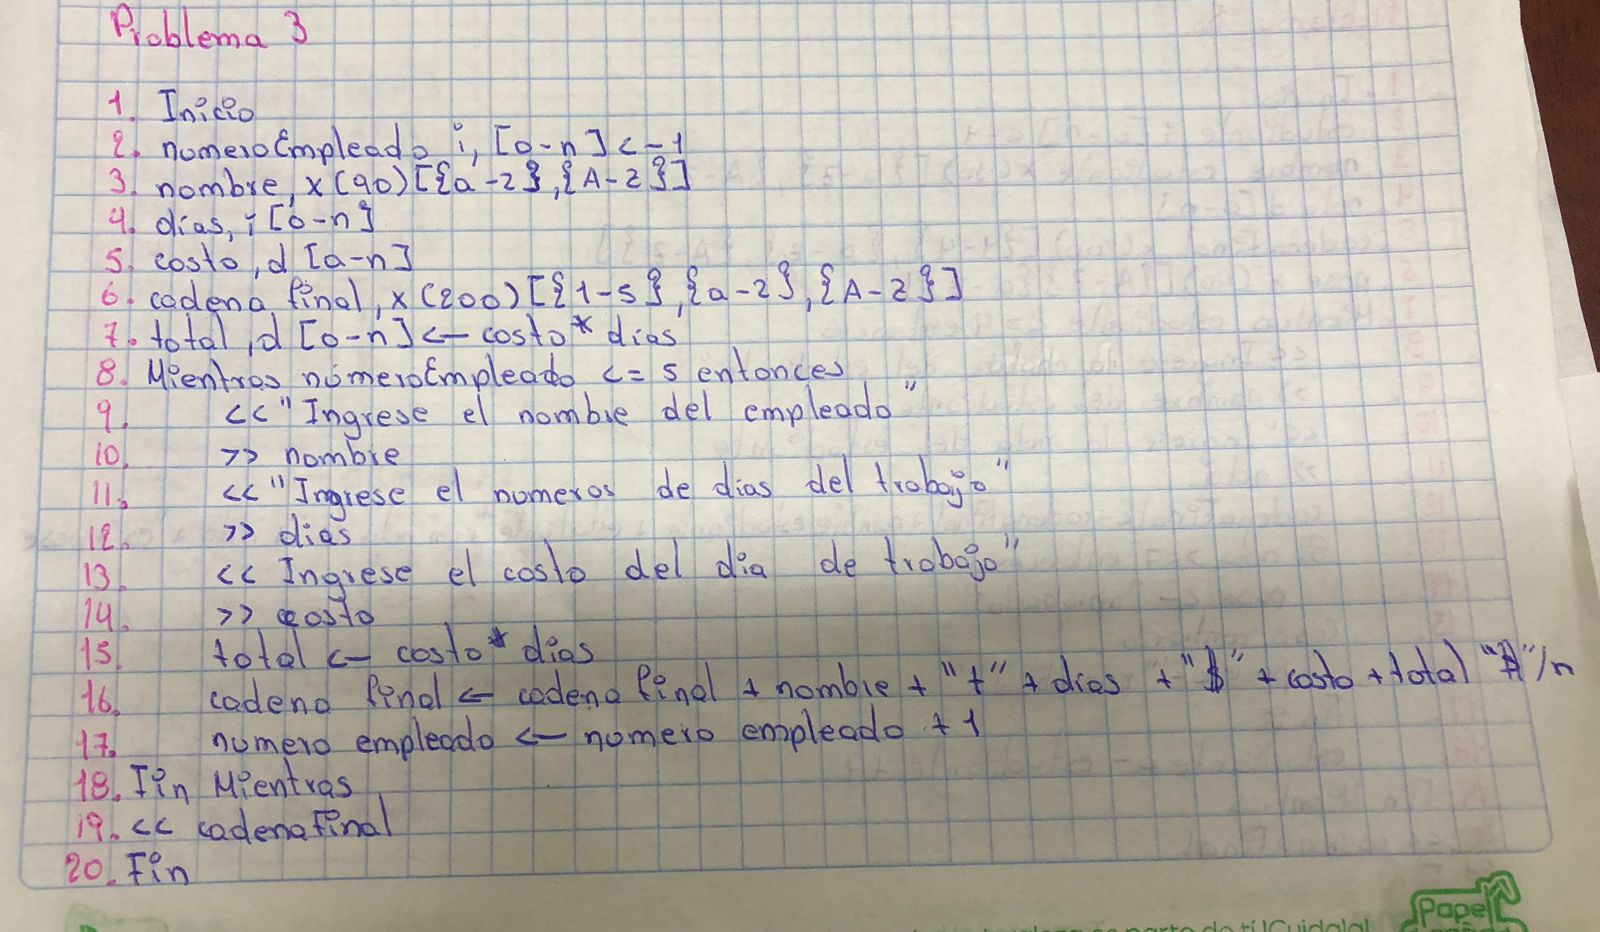 Problema 3
1. Inicio
2. numeroEmpleado i, [0-n] <-1
3. nombre, x(90)[{a-z},{A-Z}]
4. días, i [0-n]
5. costo, d [a-n]
6. cadena final, x(200)[{1-5},{a-z},{A-Z}]
7. total, d [0-n] <- costo* dias
8. Mientras númeroEmpleado <= 5 entonces
9. <<"Ingrese el nombre del empleado"
10. >> nombre
11. <<"Ingrese el numeros de dias del trabajo"
12. >> dias
13. << Ingrese el costo del dia de trabajo"
14. >> costo
15. total <- costo* dias
16. cadena final <- cadena final + nombre + "t" + dias + "$" + costo + total "$"/n
17. numero empleado <- numero empleado + 1
18. Fin Mientras
19. << cadenafinal
20. Fin
Papel